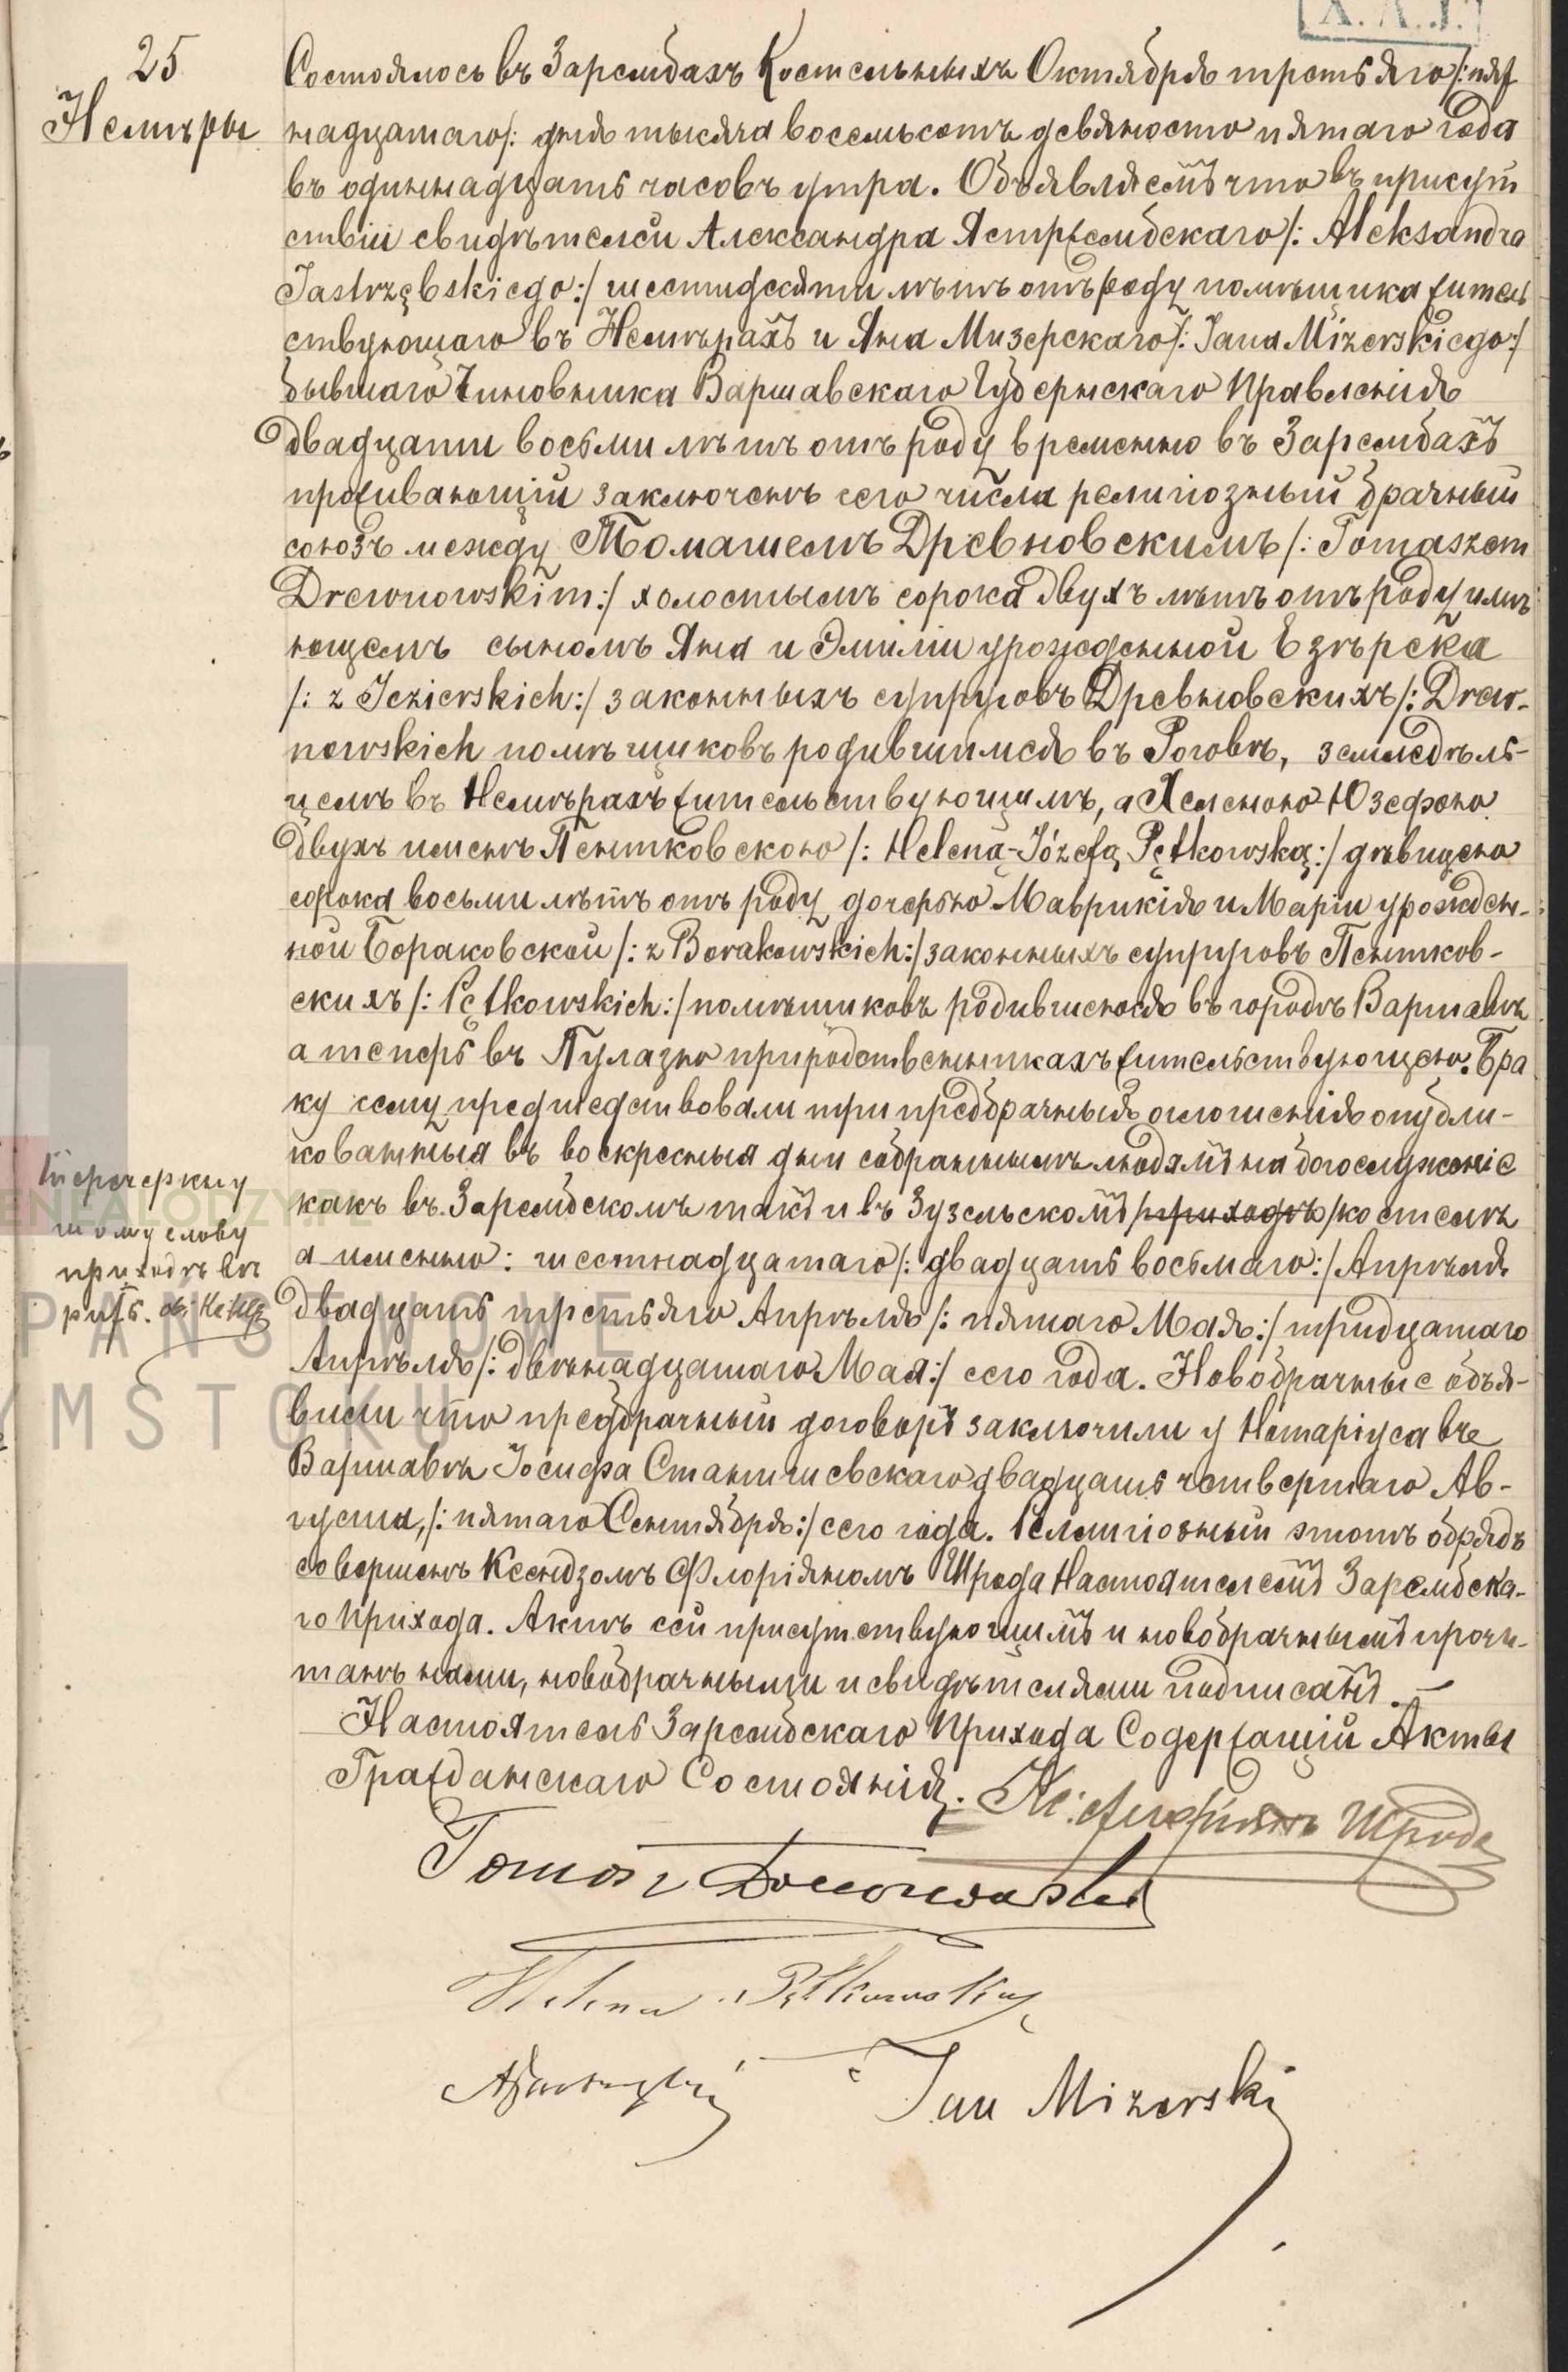 25
Немѣры
Состоялось въ Зарембахъ Костельныхъ Октября третьяго /:пят
надцатаго/: дня тысяча восемьсотъ девяносто пятаго года
въ одиннадцать часовъ утра. Объявляемъ что въ присут
ствіи свидѣтелей Александра Ястржембскаго /: Aleksandra
Jastrzębskiego:/ шестидесяти лѣтъ отъ роду помѣщика жител
ствующаго въ Немѣрахъ и Яна Мизерскаго /: Jana Mizerskiego:/
бывшаго Чиновника Варшавскаго Губернскаго Правленія
двадцати восьми лѣтъ отъ роду временно въ Зарембахъ
проживающій заключенъ сего числа религіозный брачный
союзъ между Томашемъ Древновскимъ /: Tomaszem
Drewnowskim:/ холостымъ сорока двухъ лѣтъ отъ роду имѣ
ющемъ сыномъ Яна и Эмиліи урожденной Езѣрска
/: z Jezierskich:/ законныхъ супруговъ Древновскихъ /: Drew-
nowskich помѣщиковъ родившимся въ Роговѣ, земледѣль-
цемъ въ Немѣрахъ жительствующимъ, а Хеленою-Юзефою
двухъ именъ Пентковскою /: Heleną-Józefą Pętkowską:/ дѣвицею
сорока восьми лѣтъ отъ роду дочерью Маврикія и Маріи урожден-
ной Бораковской /: z Borakowskich:/ законныхъ супруговъ Пентков-
скихъ /: Pętkowskich:/ помѣщиковъ родившеюся въ городѣ Варшавѣ
а теперь въ Пулазю при родственникахъ жительствующею. Бра
ку сему предшествовали три предбрачныя оглошенія опубли-
кованныя въ воскресныя дни собраннымъ людямъ на богослуженіе
какъ въ Зарембскомъ такъ и въ Зузельскомъ /приходѣ/ костелѣ
а именно: шестнадцатаго /: двадцать восьмаго:/ Апрѣля
двадцать третьяго Апрѣля /: пятаго Мая:/ тридцатаго
Апрѣля /: двѣнадцатаго Мая:/ сего года. Новобрачные объя-
вили что предбрачный договоръ заключили у Нотаріуса въ
Варшавѣ Іосифа Станишевскаго двадцать четвертаго Ав-
густа, /: пятаго Сентября:/ сего года. Религіозный этотъ обрядъ
совершенъ Ксендзомъ Флоріяномъ Шрода Настоятелемъ Зарембска-
го Прихода. Актъ сей присутствующимъ и новобрачнымъ прочи-
танъ нами, новобрачными и свидѣтелями подписанъ.—
Настоятель Зарембскаго Прихода Содержащій Акты
Гражданскаго Состоянія. Кс: Флоріянъ Шрода
Tomasz Drewnowski
Helena Pętkowska
AJastrzębski
Jan Mizerski
тому слову
приходѣ вѣ